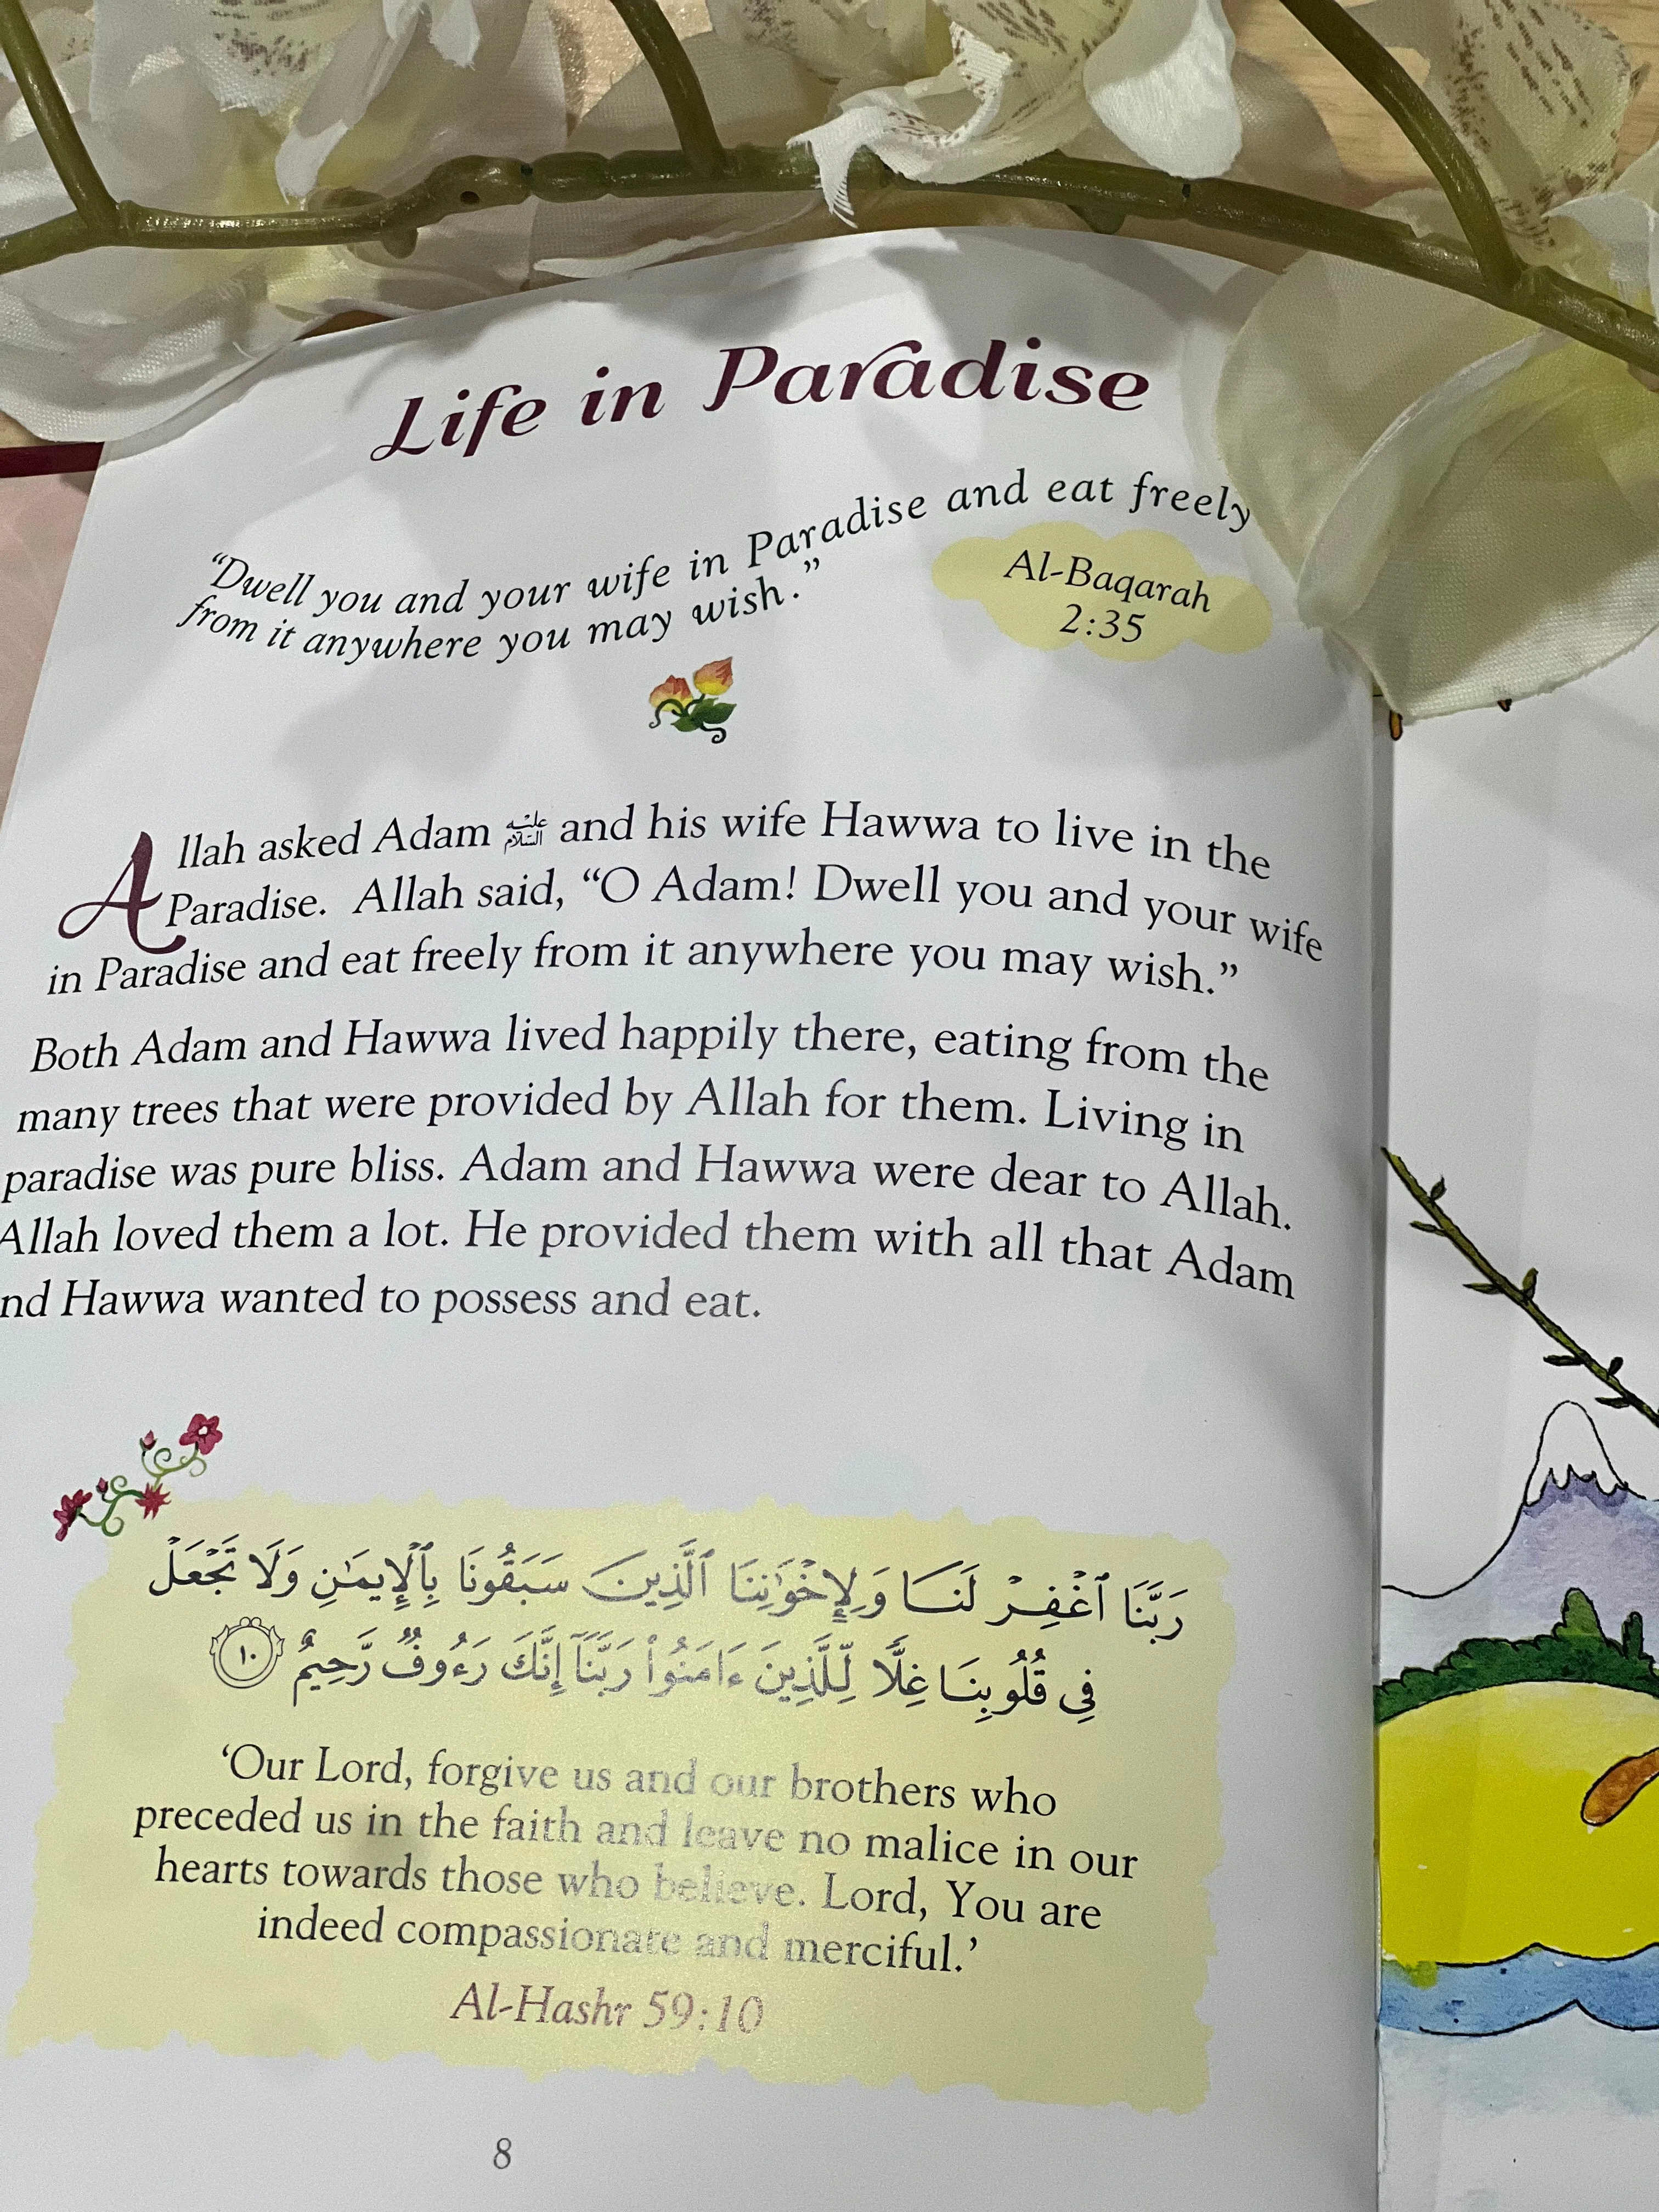 Life in Paradise
“Dwell you and your wife in Paradise and eat freely
from it anywhere you may wish.”
Al-Baqarah
2:35
Allah asked Adam عليه السلام and his wife Hawwa to live in the
Paradise. Allah said, “O Adam! Dwell you and your wife
in Paradise and eat freely from it anywhere you may wish.”
Both Adam and Hawwa lived happily there, eating from the
many trees that were provided by Allah for them. Living in
paradise was pure bliss. Adam and Hawwa were dear to Allah.
Allah loved them a lot. He provided them with all that Adam
nd Hawwa wanted to possess and eat.
رَبَّنَا ٱغْفِرْ لَنَا وَلِإِخْوَٰنِنَا ٱلَّذِينَ سَبَقُونَا بِٱلْإِيمَٰنِ وَلَا تَجْعَلْ
فِى قُلُوبِنَا غِلًّا لِّلَّذِينَ ءَامَنُوا۟ رَبَّنَآ إِنَّكَ رَءُوفٌ رَّحِيمٌ ١٠
‘Our Lord, forgive us and our brothers who
preceded us in the faith and leave no malice in our
hearts towards those who believe. Lord, You are
indeed compassionate and merciful.’
Al-Hashr 59:10
8